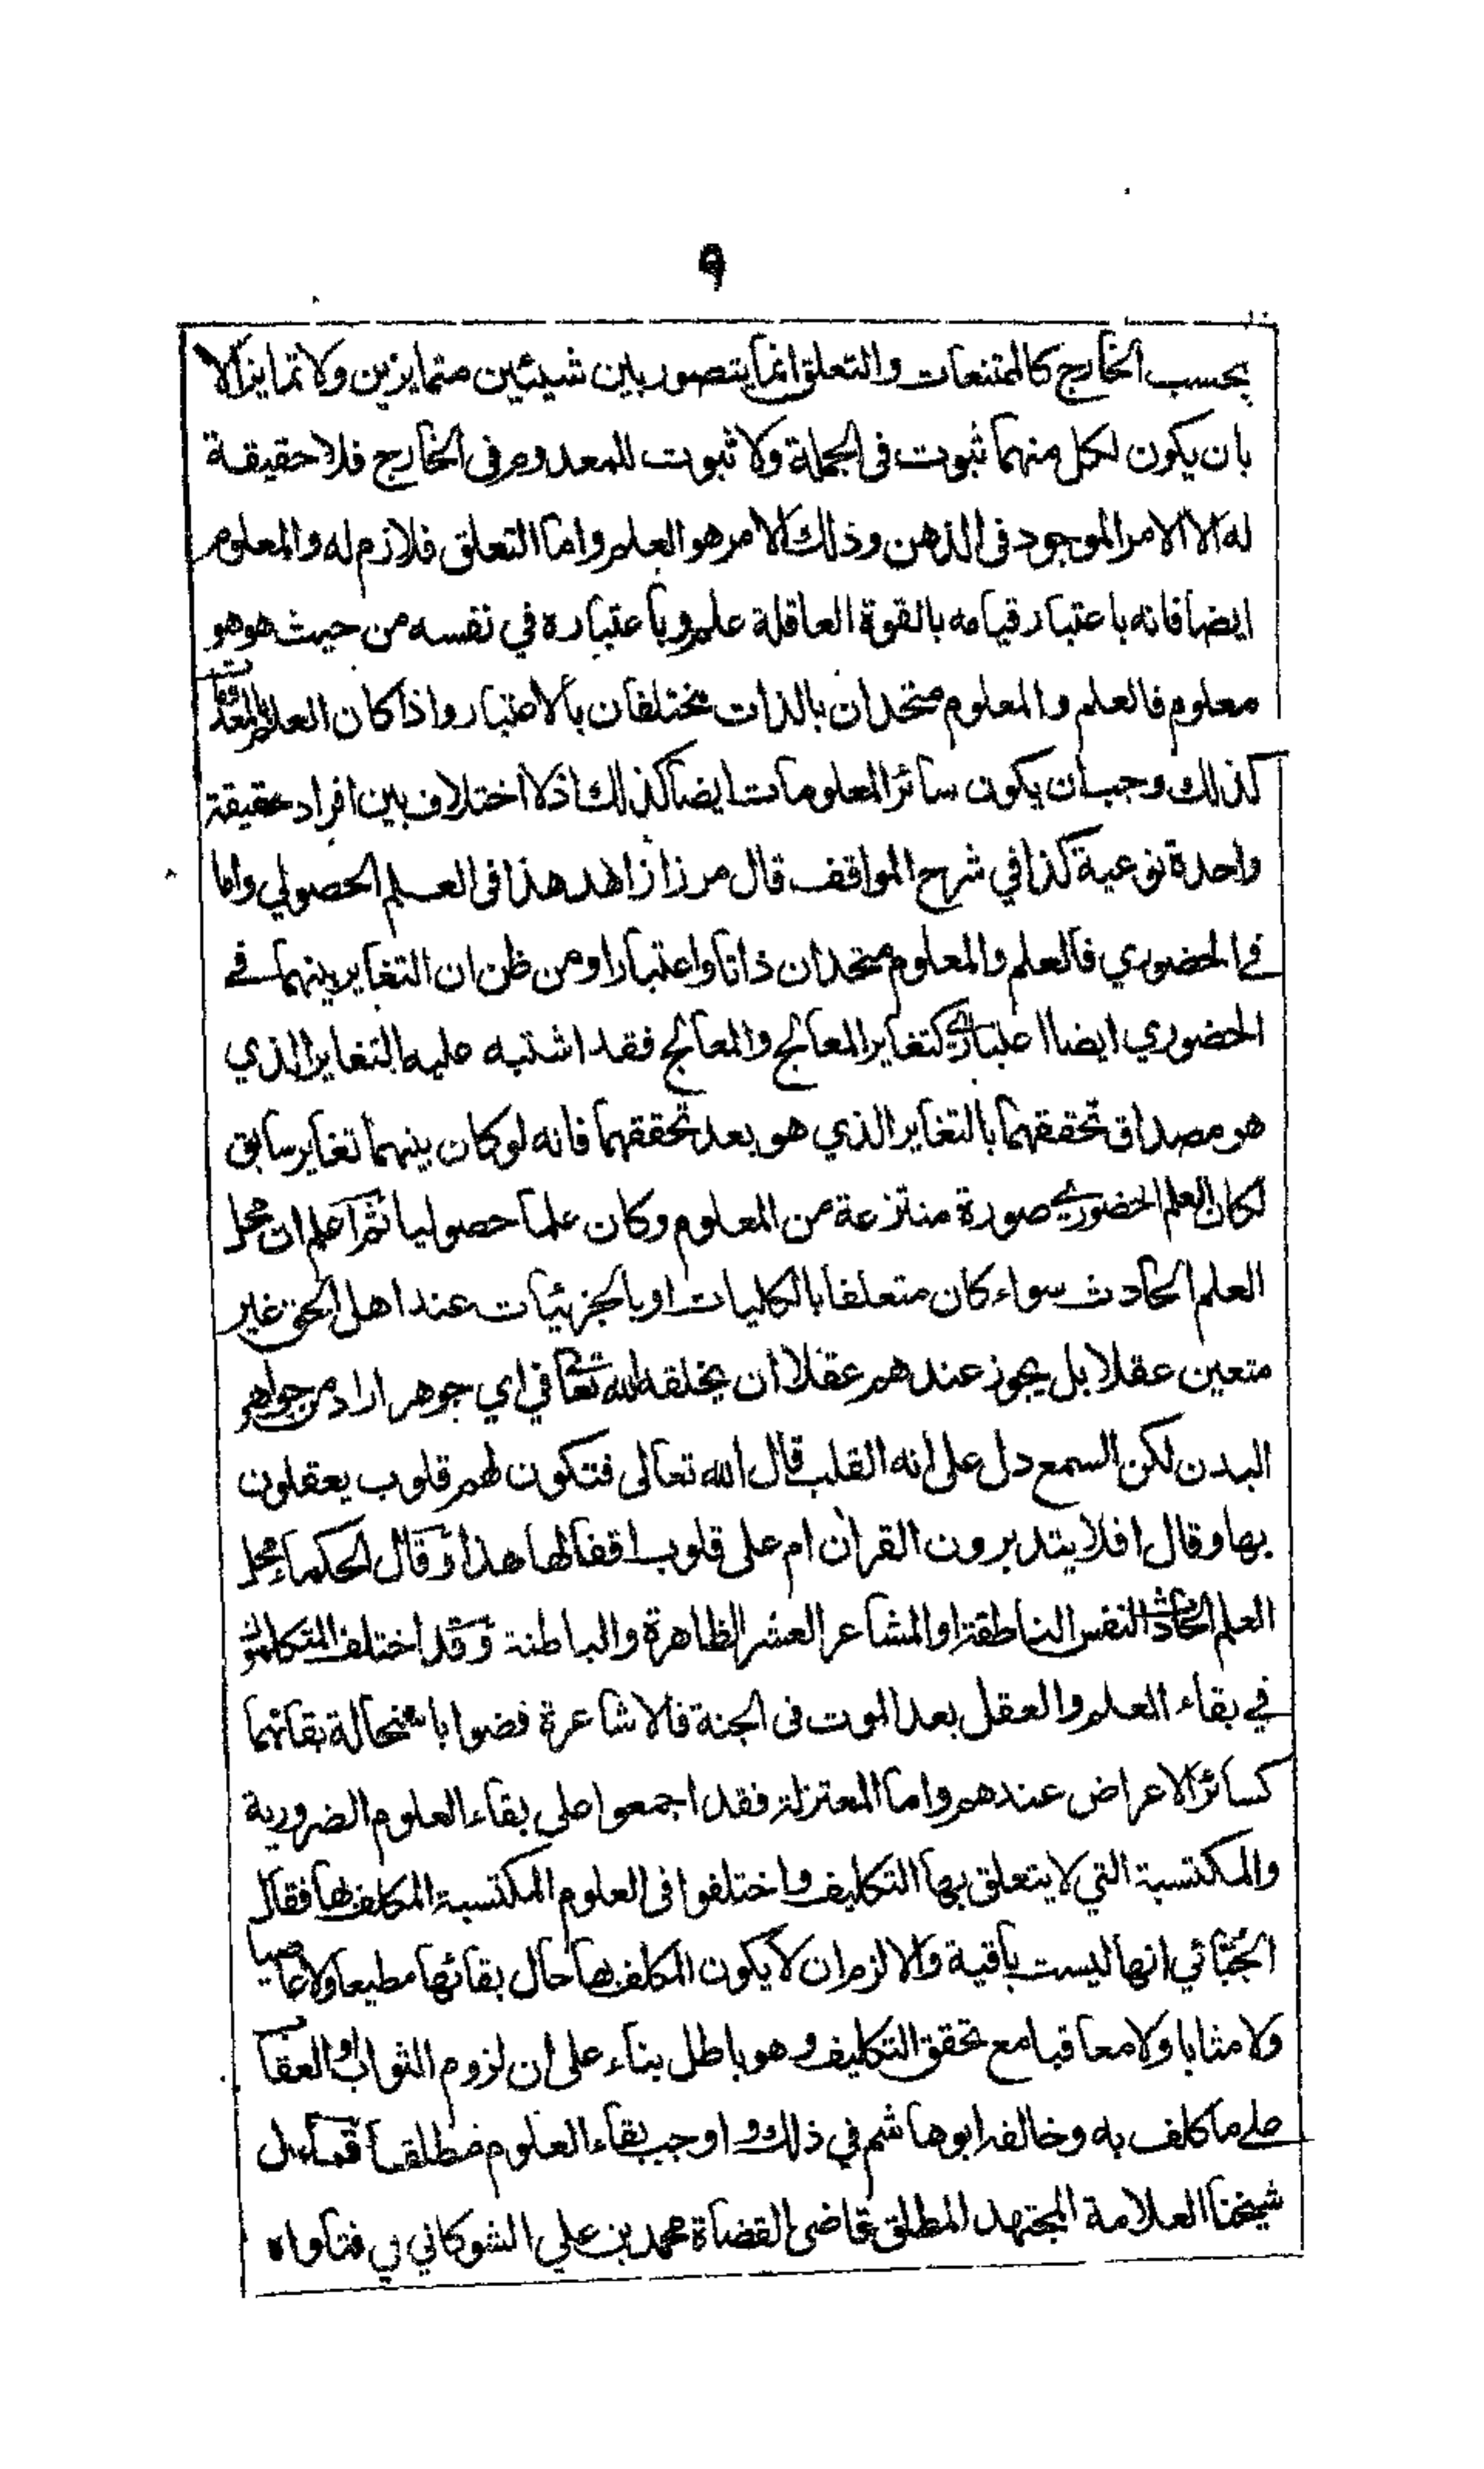 ٩
بحسب الخارج كالممتنعات والتعلق انما يتصور بين شيئين متمايزين ولا تمايز الا
بان يكون لكل منهما ثبوت فى الجملة ولا ثبوت للمعدوم فى الخارج فلا حقيقة
له الا الامر الموجود فى الذهن وذلك الامر هو العلم واما التعلق فلازم له والمعلوم
ايضا فانه باعتبار قيامه بالقوة العاقلة علم وباعتباره في نفسه من حيث هو هو
معلوم فالعلم والمعلوم متحدان بالذات مختلفان بالاعتبار واذا كان العلم بالمعدوم
كذلك وجب ان يكون سائر المعلومات ايضا كذلك اذ لا اختلاف بين افراد حقيقة
واحدة نوعية كذا في شرح المواقف قال مرزا زاهد هذا فى العلم الحصولي واما
في الحضوري فالعلم والمعلوم متحدان ذاتا واعتبارا ومن ظن ان التغاير بينهما في
الحضوري ايضا اعتباري كتغاير المعالج والمعالج فقد اشتبه عليه التغاير الذي
هو مصداق تحققهما بالتغاير الذي هو بعد تحققهما فانه لو كان بينهما تغاير سابق
لكان العلم الحضوري صورة منتزعة من المعلوم وكان علما حصوليا ثم اعلم ان محل
العلم الحادث سواء كان متعلقا بالكليات او بالجزئيات عند اهل الحق غير
متعين عقلا بل يجوز عندهم عقلا ان يخلقه الله تعالى في اي جوهر اراد من جواهر
البدن لكن السمع دل على انه القلب قال الله تعالى فتكون لهم قلوب يعقلون
بها وقال افلا يتدبرون القرآن ام على قلوب اقفالها هذا وقال الحكماء محل
العلم الحادث النفس الناطقة او المشاعر العشر الظاهرة والباطنة وقد اختلف المتكلمون
في بقاء العلم والعقل بعد الموت فى الجنة فالاشاعرة قضوا باستحالة بقائهما
كسائر الاعراض عندهم واما المعتزلة فقد اجمعوا على بقاء العلوم الضرورية
والمكتسبة التي لا يتعلق بها التكليف واختلفوا فى العلوم المكتسبة المكلف بها فقال
الجُبّائي انها ليست باقية والا لزم ان لا يكون المكلف بها حال بقائها مطيعا ولا عاصيا
ولا مثابا ولا معاقبا مع تحقق التكليف وهو باطل بناء على ان لزوم الثواب والعقاب
على ما كلف به وخالفه ابو هاشم في ذلك و اوجب بقاء العلوم مطلقا قال
شيخنا العلامة المجتهد المطلق قاضى القضاة محمد بن علي الشوكاني في فتاواه